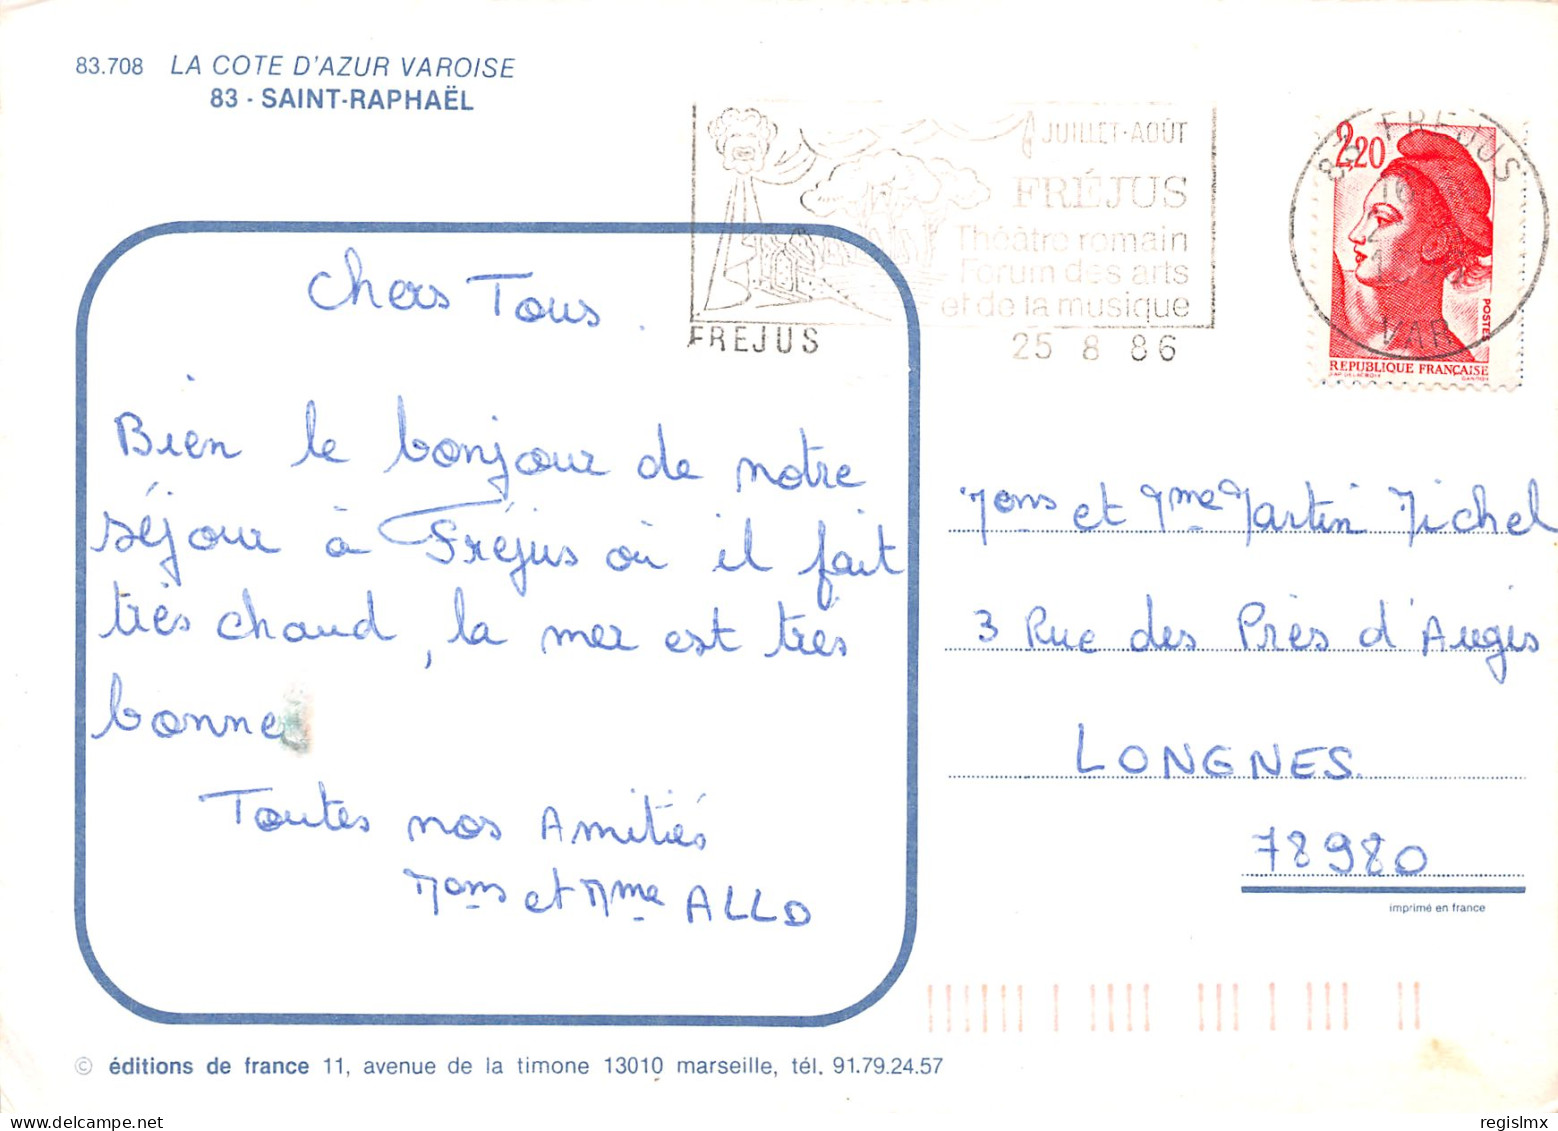 83.708 LA COTE D'AZUR VAROISE
83 - SAINT-RAPHAËL
JUILLET-AOÛT
FRÉJUS
Théâtre romain
Forum des arts
et de la musique
FREJUS
25 8 86
83 FREJUS
VAR
2,20
POSTES
REPUBLIQUE FRANÇAISE
Chers Tous.
Bien le bonjour de notre
séjour à Fréjus où il fait
très chaud, la mer est très
bonne
Toutes nos Amitiés
Mons et Mme ALLO
Mons et Mme Martin Michel
3 Rue des Près d'Augis
LONGNES.
78980
imprimé en france
© éditions de france 11, avenue de la timone 13010 marseille, tél. 91.79.24.57
regislmx